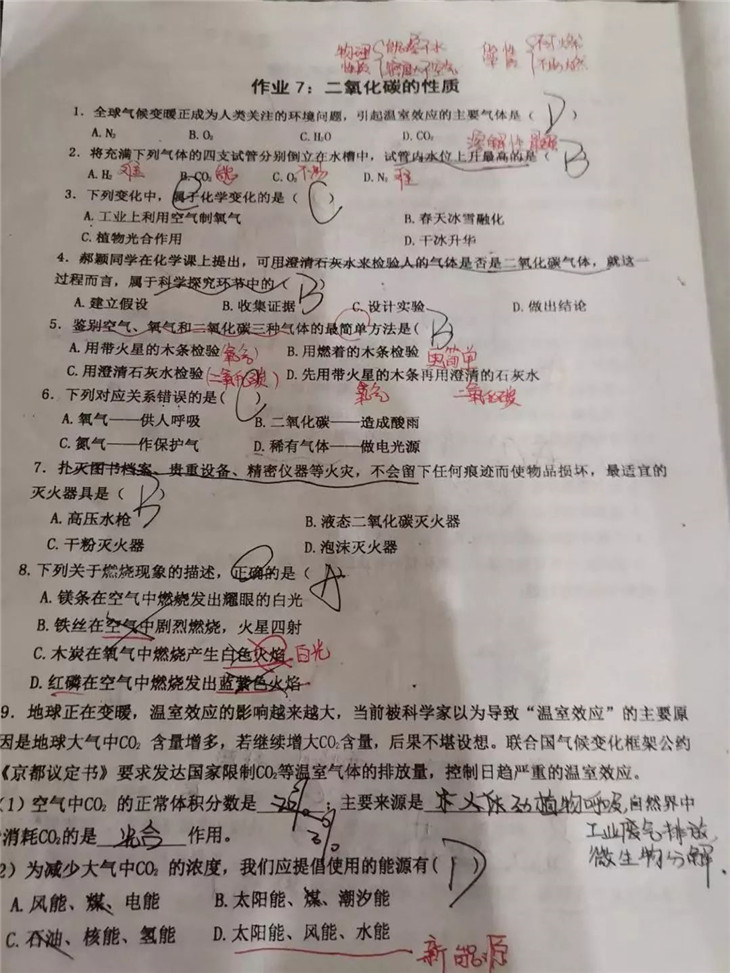 物理性质 能溶于水 密度大于空气
化学性质 不可燃 不助燃
作业 7：二氧化碳的性质
1．全球气候变暖正成为人类关注的环境问题，引起温室效应的主要气体是（ D ）
A. N₂ B. O₂ C. H₂O D. CO₂
2．将充满下列气体的四支试管分别倒立在水槽中，试管内水位上升最高的是（ B ）
A. H₂ 难 B. CO₂ 能 C. O₂ 不易 D. N₂ 难
3．下列变化中，属于化学变化的是（ C ）
A. 工业上利用空气制氧气 B. 春天冰雪融化
C. 植物光合作用 D. 干冰升华
4．郝颖同学在化学课上提出，可用澄清石灰水来检验人的气体是否是二氧化碳气体，就这一
过程而言，属于科学探究环节中的（ B ）
A. 建立假设 B. 收集证据 C. 设计实验 D. 做出结论
5．鉴别空气、氧气和二氧化碳三种气体的最简单方法是（ B
A. 用带火星的木条检验（氧气） B. 用燃着的木条检验 更简单
C. 用澄清石灰水检验（二氧化碳） D. 先用带火星的木条再用澄清的石灰水
氧气 二氧化碳
6．下列对应关系错误的是（ ）
A. 氧气——供人呼吸 B. 二氧化碳——造成酸雨
C. 氮气——作保护气 D. 稀有气体——做电光源
7．扑灭图书档案、贵重设备、精密仪器等火灾，不会留下任何痕迹而使物品损坏，最适宜的
灭火器具是（ B ）
A. 高压水枪 B. 液态二氧化碳灭火器
C. 干粉灭火器 D. 泡沫灭火器
8. 下列关于燃烧现象的描述，正确的是（ A ）
A. 镁条在空气中燃烧发出耀眼的白光
B. 铁丝在空气中剧烈燃烧，火星四射
C. 木炭在氧气中燃烧产生白色火焰 白光
D. 红磷在空气中燃烧发出蓝紫色火焰
9．地球正在变暖，温室效应的影响越来越大，当前被科学家以为导致“温室效应”的主要原
因是地球大气中CO₂ 含量增多，若继续增大CO₂含量，后果不堪设想。联合国气候变化框架公约
《京都议定书》要求发达国家限制CO₂等温室气体的排放量，控制日趋严重的温室效应。
（1）空气中CO₂ 的正常体积分数是 ；主要来源是 动植物呼吸，自然界中
工业废气排放
消耗CO₂的是 光合 作用。
微生物分解．
2）为减少大气中CO₂ 的浓度，我们应提倡使用的能源有（ D ）
A. 风能、煤、电能 B. 太阳能、煤、潮汐能
C. 石油、核能、氢能 D. 太阳能、风能、水能
新能源